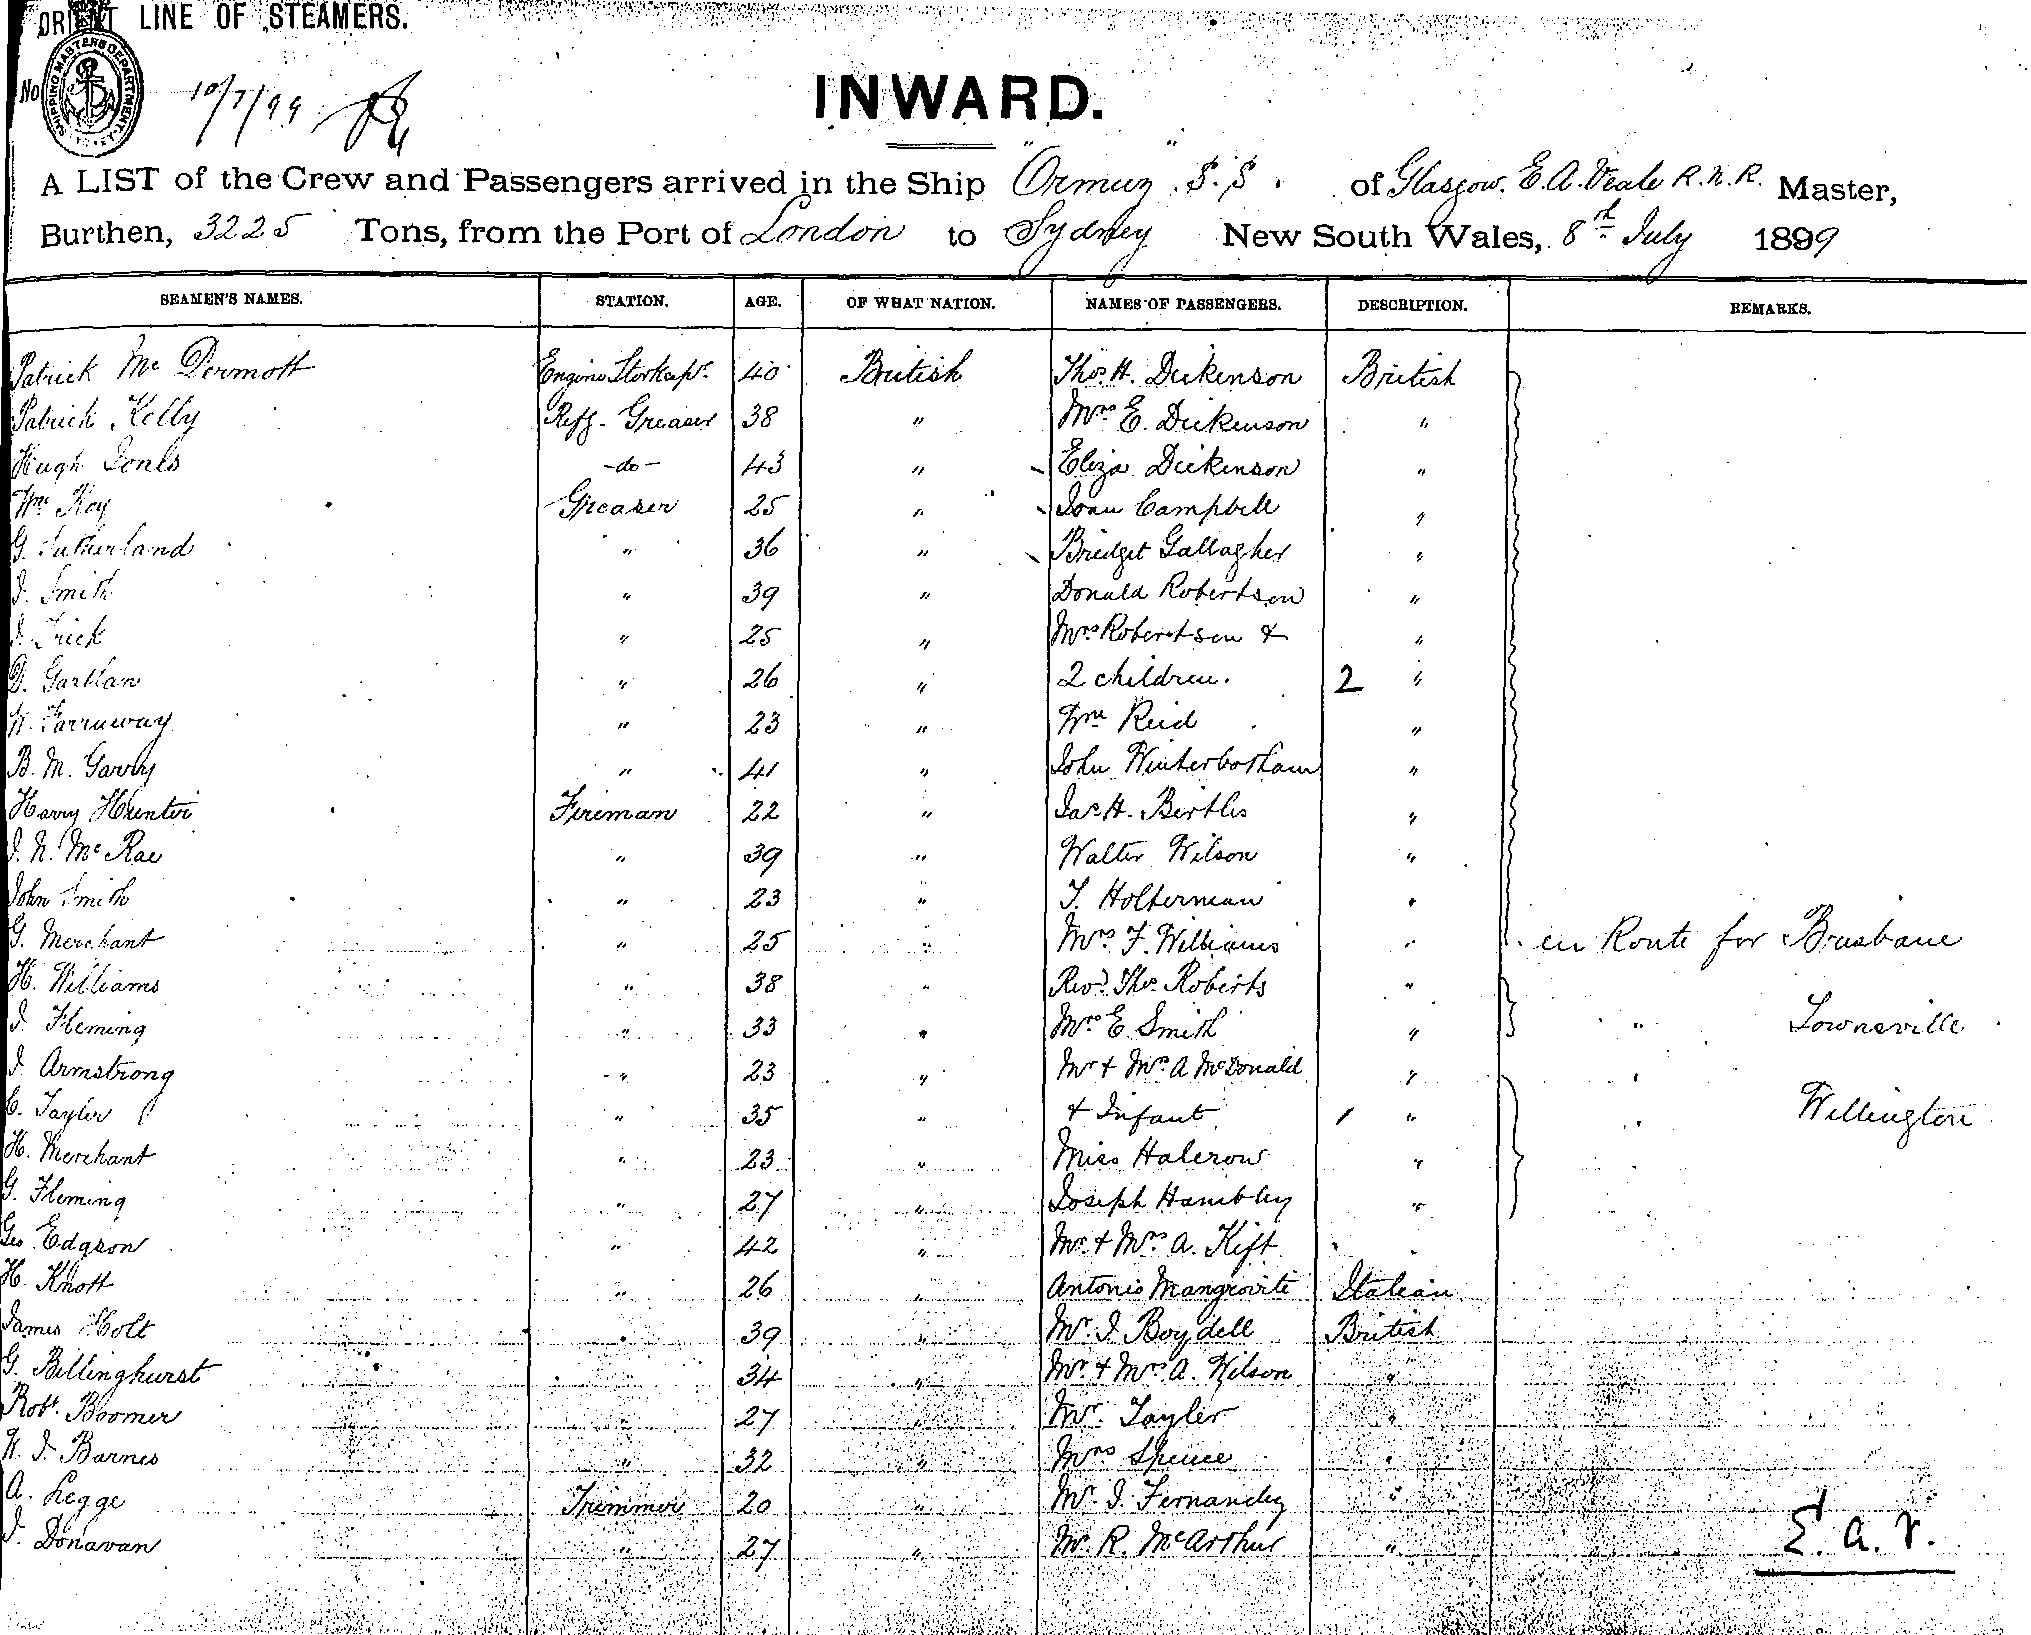 ORIENT LINE OF STEAMERS.
SHIPPING MASTERS DEPARTMENT
No
10/7/99
INWARD.
A LIST of the Crew and Passengers arrived in the Ship "Ormuz" S.S. of Glasgow. E. A. Veale R.N.R. Master,
Burthen, 3225 Tons, from the Port of London to Sydney New South Wales, 8th July 1899
SEAMEN'S NAMES. STATION. AGE. OF WHAT NATION. NAMES OF PASSENGERS. DESCRIPTION. REMARKS.
Patrick Mc Dermott Engine Storkeepr. 40 British Thos. H. Dickenson British
Patrick Kelly Refg. Greaser 38 " Mrs E. Dickenson "
Hugh Jones -do- 43 " Eliza Dickenson "
Wm Key Greaser 25 " Joan Campbell "
G. Sutherland " 36 " Bridget Gallagher "
J. Smith " 39 " Donald Robertson "
J. Trick " 25 " Mrs Robertson & "
D. Gartlan " 26 " 2 children. 2 "
W. Farraway " 23 " Wm Reid "
B. M. Garvy " 41 " John Winterbotham "
Harry Hunter Fireman 22 " Jas H. Birtles "
J. N. Mc Rae " 39 " Walter Wilson "
John Smith " 23 " T. Holterman "
G. Merchant " 25 " Mrs F. Williams " en Route for Brisbane
H. Williams " 38 " Revd. Thos. Roberts "
J. Fleming " 33 " Mrs E. Smith " " Townsville
J. Armstrong " 23 " Mr & Mrs A McDonald " "
C. Tayler " 35 " & Infant 1 " " Wellington
H. Merchant " 23 " Miss Halcrow "
G. Fleming " 27 " Joseph Hambley "
Geo. Edgson " 42 " Mr. & Mrs A. Kift "
H. Knott " 26 " Antonio Mangrovite Italian
James Holt " 39 " Mr. J. Boydell British
G. Billinghurst " 34 " Mr. & Mrs A. Wilson "
Robt. Boomer " 27 " Mr. Tayler "
W. J. Barnes " 32 " Mrs Spence "
A. Legge Trimmer 20 " Mr. J. Fernandez "
J. Donavan " 27 " Mr. R. McArthur "
E. A. V.